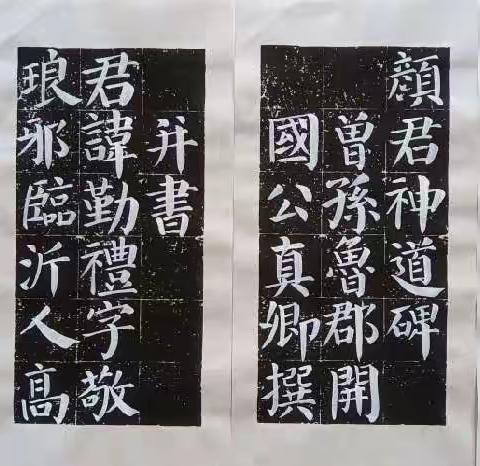 顔君神道碑
曾孫魯郡開
國公真卿撰
并書
君諱勤禮字敬
琅邪臨沂人高